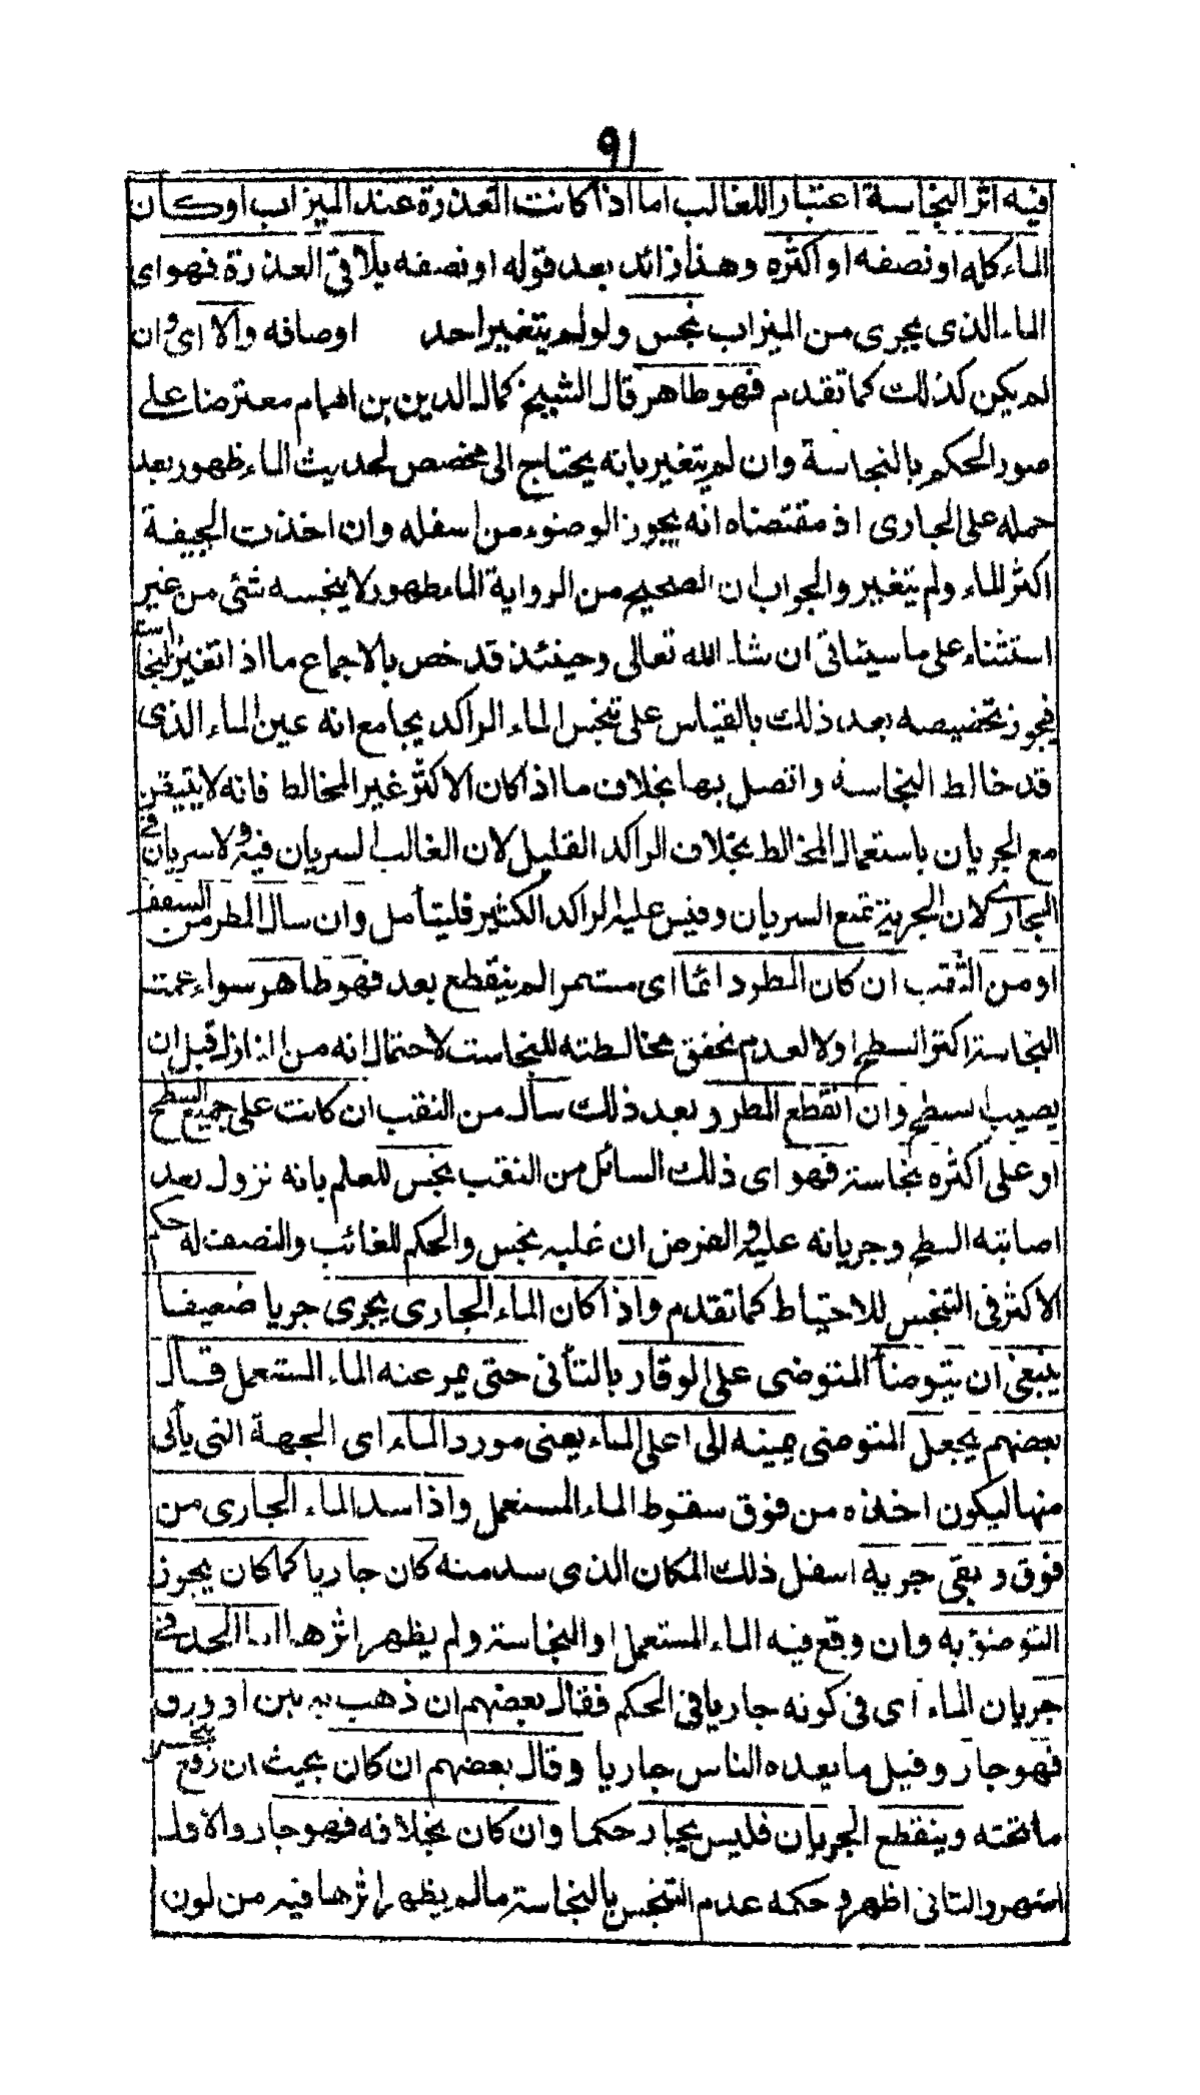 ٩١
فيه اثر النجاسة اعتبارا للغالب اما اذا كانت العذرة عند الميزاب او كان
الماء كله او نصفه او اكثره وهذا زائد بعد قوله او نصفه يلاقى العذرة فهو اى
الماء الذى يجرى من الميزاب نجس ولو لم يتغير احد اوصافه والا اى وان
لم يكن كذلك كما تقدم فهو طاهر قال الشيخ كمال الدين بن الهمام معترضا على
صور الحكم بالنجاسة وان لم يتغير بانه يحتاج الى مخصص لحديث الماء طهور بعد
حمله على الجارى اذ مقتضاه انه يجوز الوضوء من اسفله وان اخذت الجيفة
اكثر الماء ولم يتغير والجواب ان الصحيح من الرواية الماء طهور لا ينجسه شئ من غير
استثناء على ما سيئاتى ان شاء الله تعالى وحينئذ قد خص بالاجماع ما اذا تغير بالنجاسة
فيجوز تخصيصه بعد ذلك بالقياس على تنجس الماء الراكد بجامع انه عين الماء الذى
قد خالط النجاسة واتصل بها بخلاف ما اذا كان الاكثر غير المخالط فانه لا يتيقن
مع الجريان باستعمال المخالط بخلاف الراكد القليل لان الغالب السريان فيه ولا سريان فى
الجارى لان الجرية تمنع السريان وقيس عليه الراكد الكثير فليتأمل وان سال المطر من السقف
او من الثقب ان كان المطر دائما اى مستمرا لم ينقطع بعد فهو طاهر سواء عمت
النجاسة اكثر السطح اولا لعدم تحقق مخالطته للنجاست لاحتمال انه من النازل قبل ان
يصيب السطح وان انقطع المطر و بعد ذلك سال من النقب ان كانت على جميع السطح
او على اكثره نجاسة فهو اى ذلك السائل من النقب نجس للعلم بانه نزول بعد
اصابته السطح وجريانه عليه والفرض ان غلبه نجس والحكم للغائب والنصف له حكم
الاكثر فى التنجس للاحتياط كما تقدم واذا كان الماء الجارى يجرى جريا ضعيفا
ينبغى ان يتوضأ المتوضى على الوقار بالتأنى حتى يمر عنه الماء المستعمل قال
بعضهم يجعل المتوضى يمينه الى اعلى الماء يعنى مورد الماء اى الجهة التى يأتى
منها ليكون اخذه من فوق سقوط الماء المستعمل واذا سد الماء الجارى من
فوق و بقى جريه اسفل ذلك المكان الذى سد منه كان جاريا كما كان يجوز
التوضؤ به وان وقع فيه الماء المستعمل او النجاسة ولم يظهر اثرها الحد فى
جريان الماء اى فى كونه جاريا فى الحكم فقال بعضهم ان ذهب به تبن او ورق
فهو جار وقيل ما يعده الناس جاريا وقال بعضهم ان كان بحيث ان رفع
ما تحته وينقطع الجريان فليس بجار حكما وان كان بخلافه فهو جار والاول
اشهر والثانى اظهر و حكمه عدم التنجس بالنجاسة مالم يظهر اثرها فيه من لون